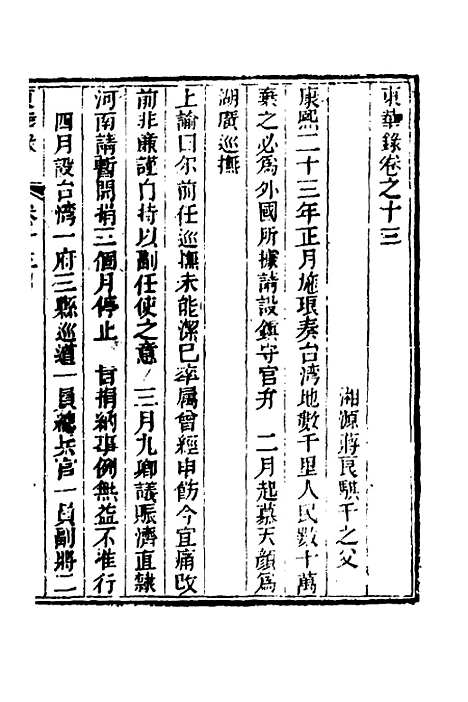 東華錄卷之十三
湘源蔣良騏千之父
康熙二十三年正月施琅奏台湾地数千里人民数十萬
棄之必為外國所據請設鎮守官弁 二月起慕天顏為
湖廣巡撫
上諭曰尔前任巡撫未能潔己率属曾經申飭今宜痛改
前非廉謹自持以副任使之意 三月九卿議賑濟直隸
河南請暫開捐三個月停止 旨捐納事例無益不准行
四月設台湾一府三縣巡道一員總兵官一員副將二